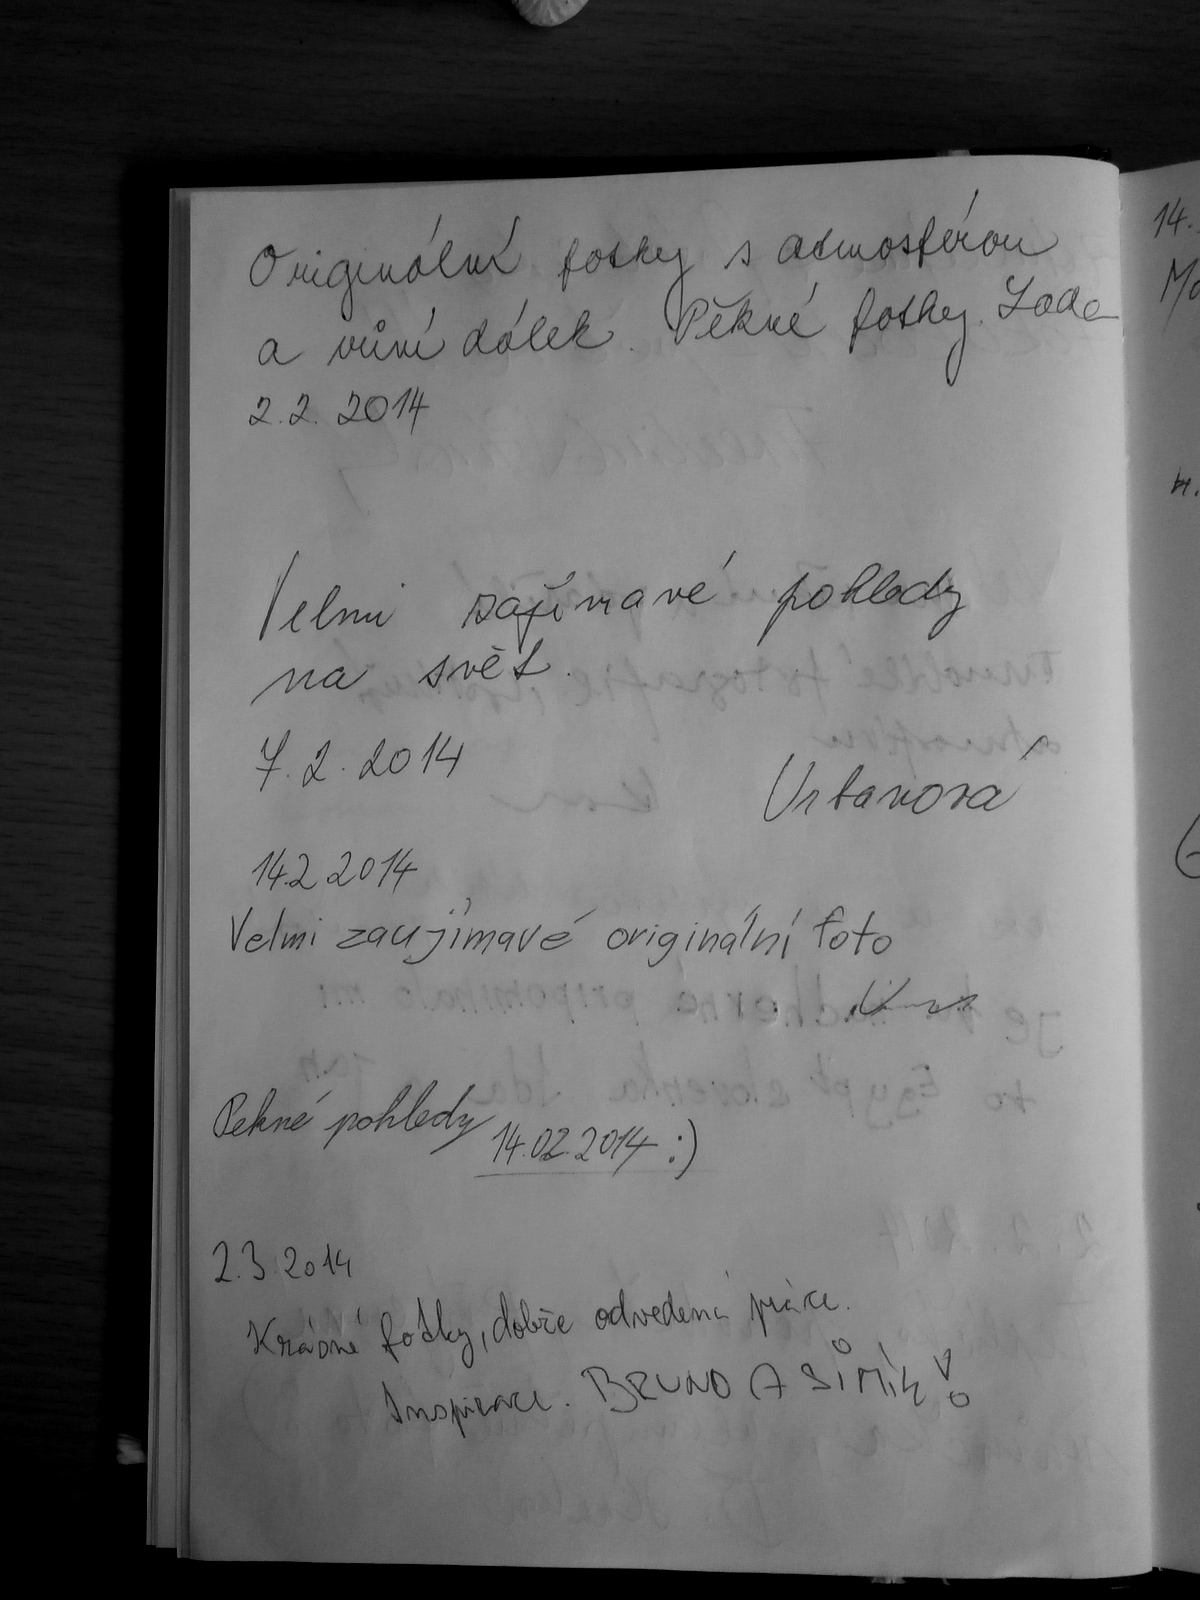 Originální fotky s atmosférou
a vůní dálek. Pěkné fotky. Lada
2.2. 2014
Velmi zajímavé pohledy
na svět.
7.2.2014
14.2 2014
Velmi zaujímavé originální foto
Pekné pohledy 14.02.2014 :)
2.3 2014
Krásné fotky, dobře odvedená práce.
Inspirace. BRUNO A SIMÍK
14.